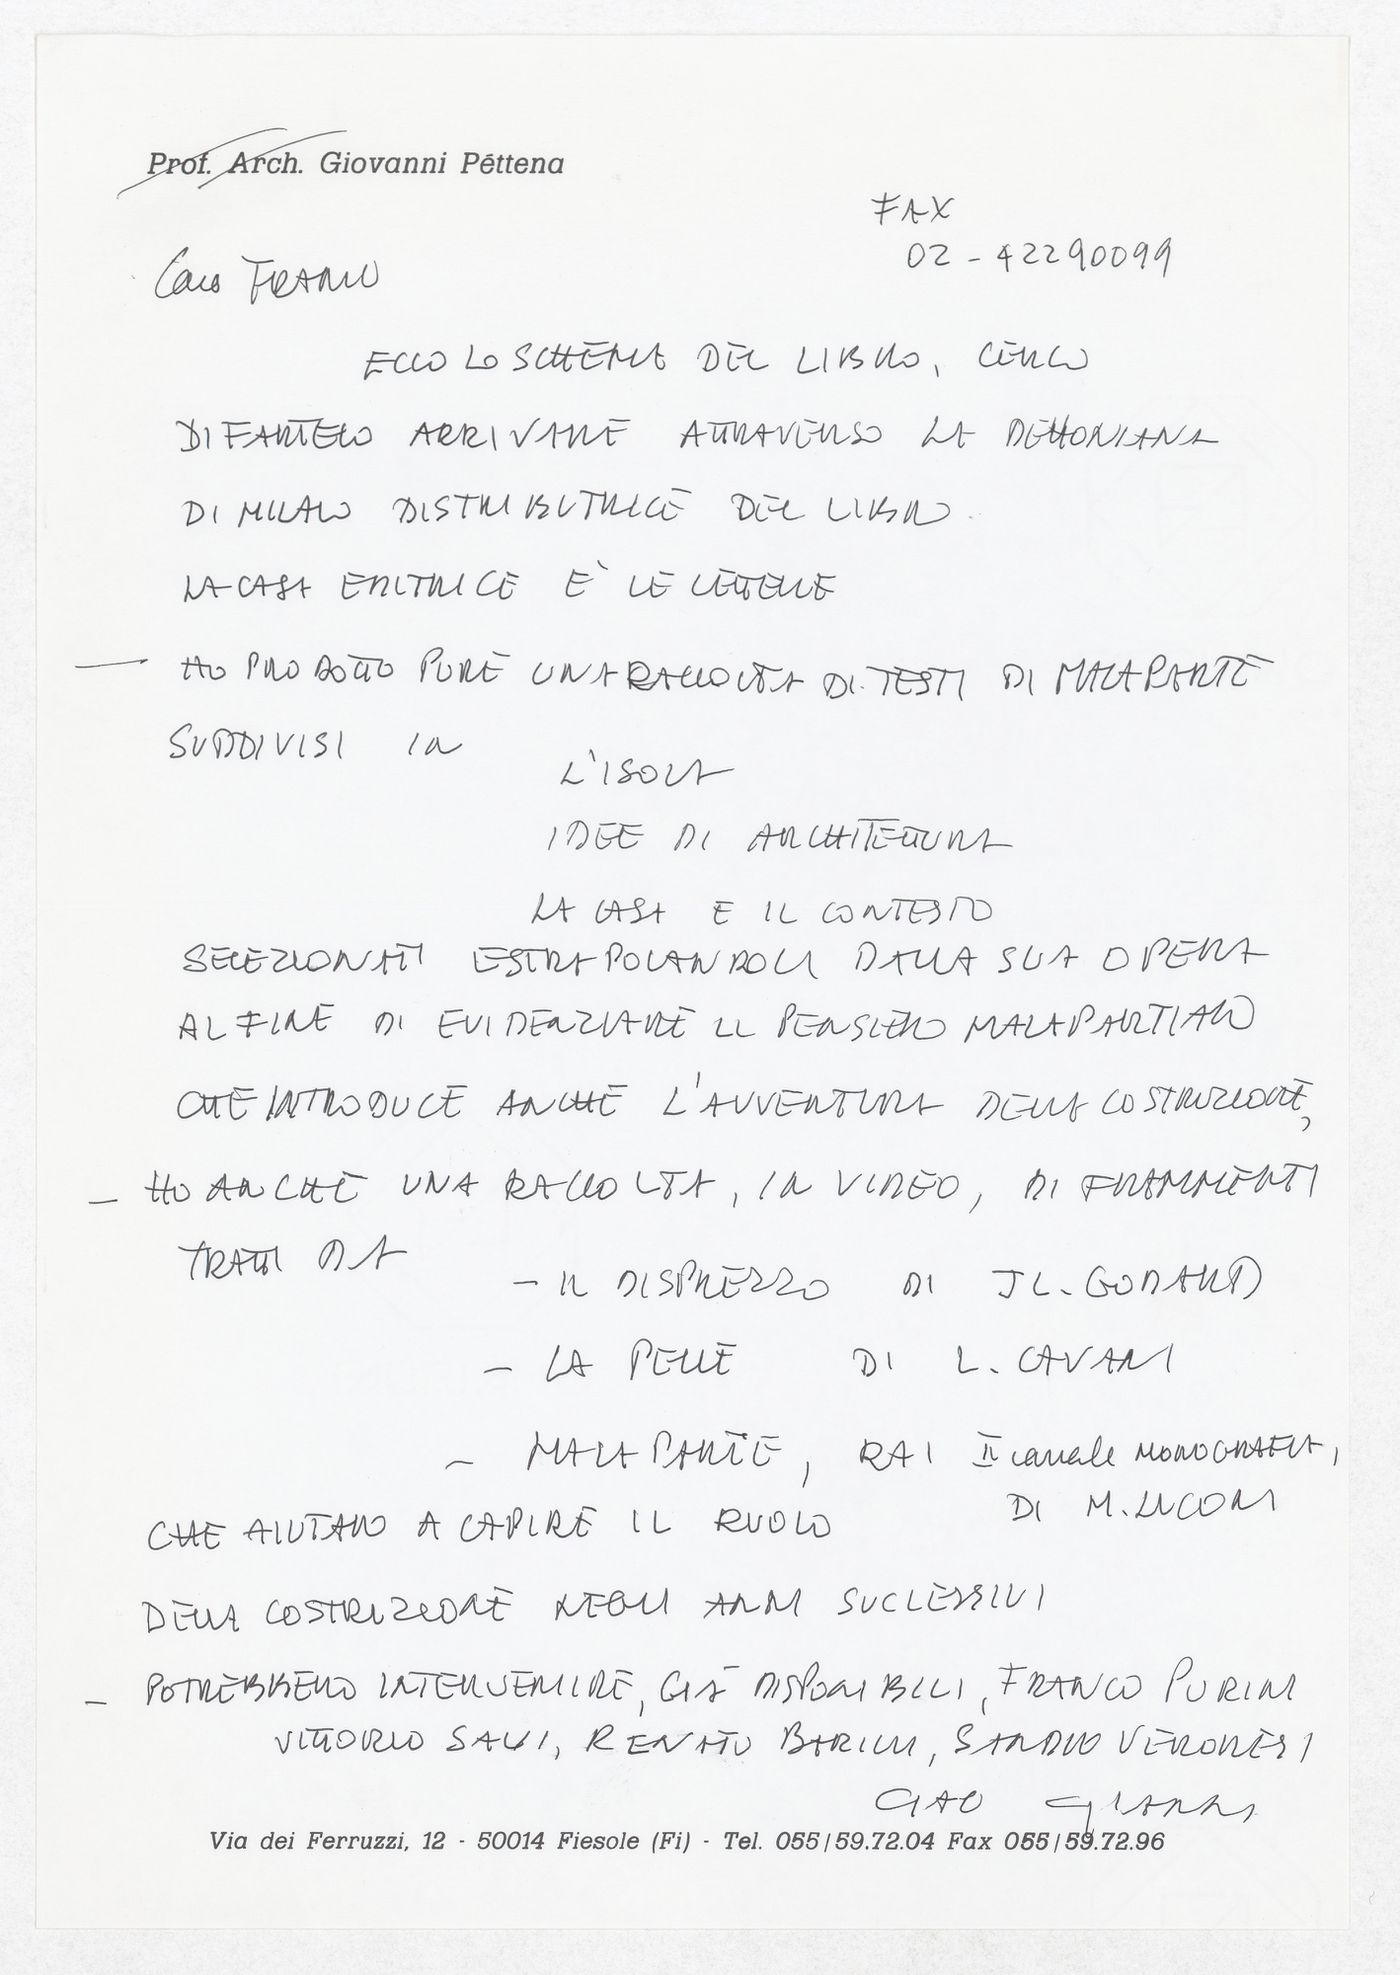 Prof. Arch. Giovanni Pèttena
FAX
02-42290099
Caro FRANCO
ECCO LO SCHEMA DEL LIBRO, CERCO
DI FARTELO ARRIVARE ATTRAVERSO LA DEHONIANA
DI MILANO DISTRIBUTRICE DEL LIBRO.
LA CASA EDITRICE E' LE LETTERE
— HO PRODOTTO PURE UNA RACCOLTA DI TESTI DI MALAPARTE
SUDDIVISI IN
L'ISOLA
IDEE DI ARCHITETTURA
LA CASA E IL CONTESTO
SELEZIONATI ESTRAPOLANDOLI DALLA SUA OPERA
AL FINE DI EVIDENZIARE IL PENSIERO MALAPARTIANO
CHE INTRODUCE ANCHE L'AVVENTURA DELLA COSTRUZIONE,
— HO ANCHE UNA RACCOLTA, IN VIDEO, DI FRAMMENTI
TRATTI DA
— IL DISPREZZO DI JL. GODARD
— LA PELLE DI L. CAVANI
— MALAPARTE, RAI II canale MONOGRAFIA,
DI M. LUCONI
CHE AIUTANO A CAPIRE IL RUOLO
DELLA COSTRUZIONE NEGLI ANNI SUCCESSIVI
— POTREBBERO INTERVENIRE, GIÀ DISPONIBILI, FRANCO PURINI
VITTORIO SAVI, RENATO BARILLI, SANDRO VERONESI
CIAO GIANNI
Via dei Ferruzzi, 12 - 50014 Fiesole (Fi) - Tel. 055/59.72.04 Fax 055/59.72.96